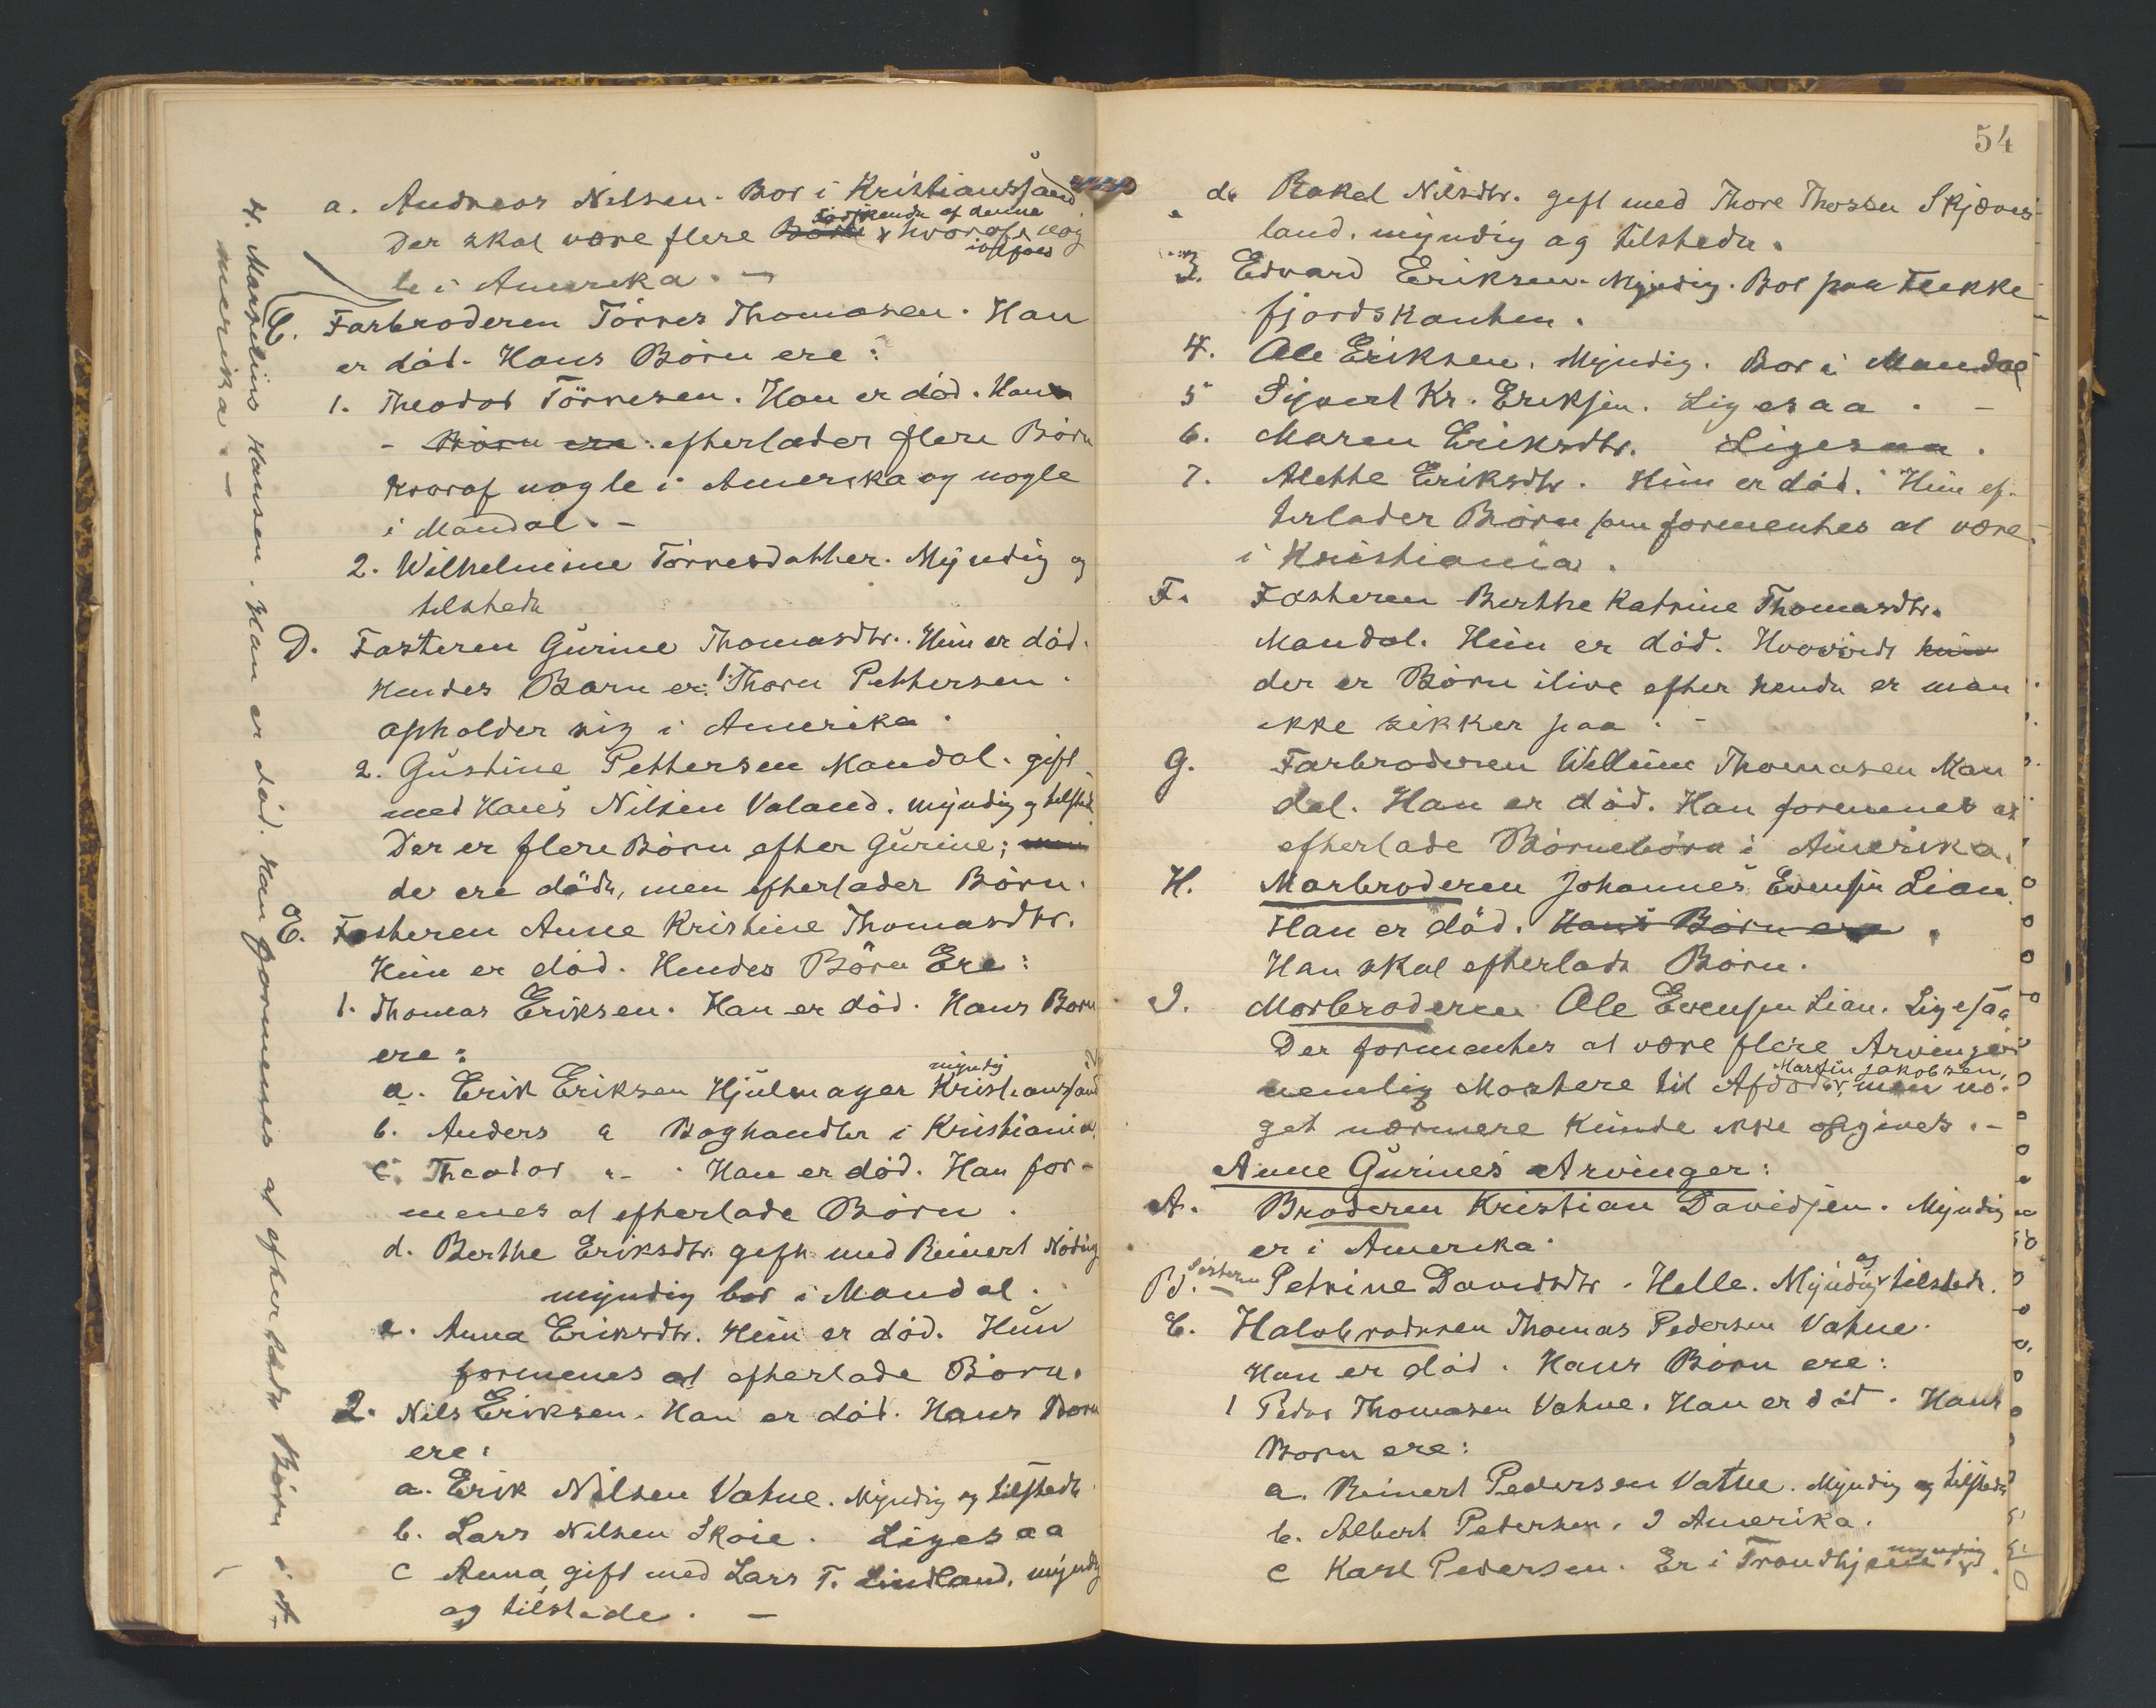 a. Andreas Nilsen. Bor i Kristianssand
Der skal være flere Børn Sødskende af denne, hvoraf nog
le i Amerika. -
C. Farbroderen Törres Thomasen. Han
er död. Hans Börn ere:
1. Theodor Törresen. Han er död. Hans
- Börn ere: efterlader flere Börn
hvoraf nogle i Amerika og nogle
i Mandal. -
2. Wilhelmine Törresdatter. Myndig og
tilstede
D. Fasteren Gurine Thomasdtr. Hun er död.
Hendes Barn er: 1. Thom Pettersen.
opholder sig i Amerika.
2. Gustine Pettersen Mandal. gift
med Hans Nilsen Valand. myndig og tilsted.
Der er flere Börn efter Gurine;
de ere döde, men efterlader Börn.
E. Fasteren Anne Kristine Thomasdtr.
Hun er död. Hendes Börn Ere:
1. Thomas Eriksen. Han er död. Hans Born
ere:
a. Erik Eriksen Hjulmager myndig Kristianssand
b. Anders " Boghandler i Kristiania
c. Theodor " - . Han er död. Han for-
menes at efterlade Börn.
d. Berthe Eriksdtr. gift med Reinert Nöding
myndig bor i Mandal.
e. Anna Eriksdtr. Hun er död. Hun
formenes at efterlade Börn.
2. Nils Eriksen. Han er död. Hans Born
ere:
a. Erik Nilsen Vatne. Myndig og tilstede
b. Lars Nilsen Skoie. Ligesaa
c Anna gift med Lars T. Lindland, myndig
og tilstede. -
4. Marselius Hansen. Han er död. Han formenes at efterlade Börn i A-
merika. -
54
d. Rakel Nilsdtr. gift med Thore Thorsen Skjæves-
land. myndig og tilstede.
3. Edvard Eriksen. Myndig. Bor paa Flekke
fjordskanten.
4. Ole Eriksen. Myndig. Bor i Mandal
5 Sivert Kr. Eriksen. Ligesaa. -
6. Maren Eriksdtr. Ligesaa.
7. Alette Eriksdtr. Hun er död. Hun ef-
terlader Börn som formentes at være
i Kristiania.
F. Fasteren Berthe Katrine Thomasdtr.
Mandal. Hun er död. Hvorvidt hun
der er Börn ilive efter hende er man
ikke sikker paa. -
G. Farbroderen Willum Thomasen Man
dal. Han er död. Han formenes at
efterlade Börnebörn i Amerika.
H. Morbroderen Johannes Evensen Lian.
Han er död. Hans Börn ere.
Han skal efterlade Börn.
I. Morbroderen Ole Evensen Lian. Ligesaa
Der formentes at være flere Arvinger
nemlig Mostere til Afdöde Martin Jakobsen, men no-
get nærmere kunde ikke opgives. -
Anne Gurines Arvinger:
A. Broderen Kristian Davidsen. Myndig
er i Amerika.
B. Sösteren Petrine Davidsdtr. Helle. Myndig og tilstede.
C. Halvbroderen Thomas Pedersen Vatne.
Han er död. Hans Börn ere:
1 Peder Thomasen Vatne. Han er död. Hans
Born ere:
a. Reinert Pedersen Vatne. Myndig og tilstede
b. Albert Pedersen. I Amerika.
c Karl Pedersen. Er i Trondhjem myndig.